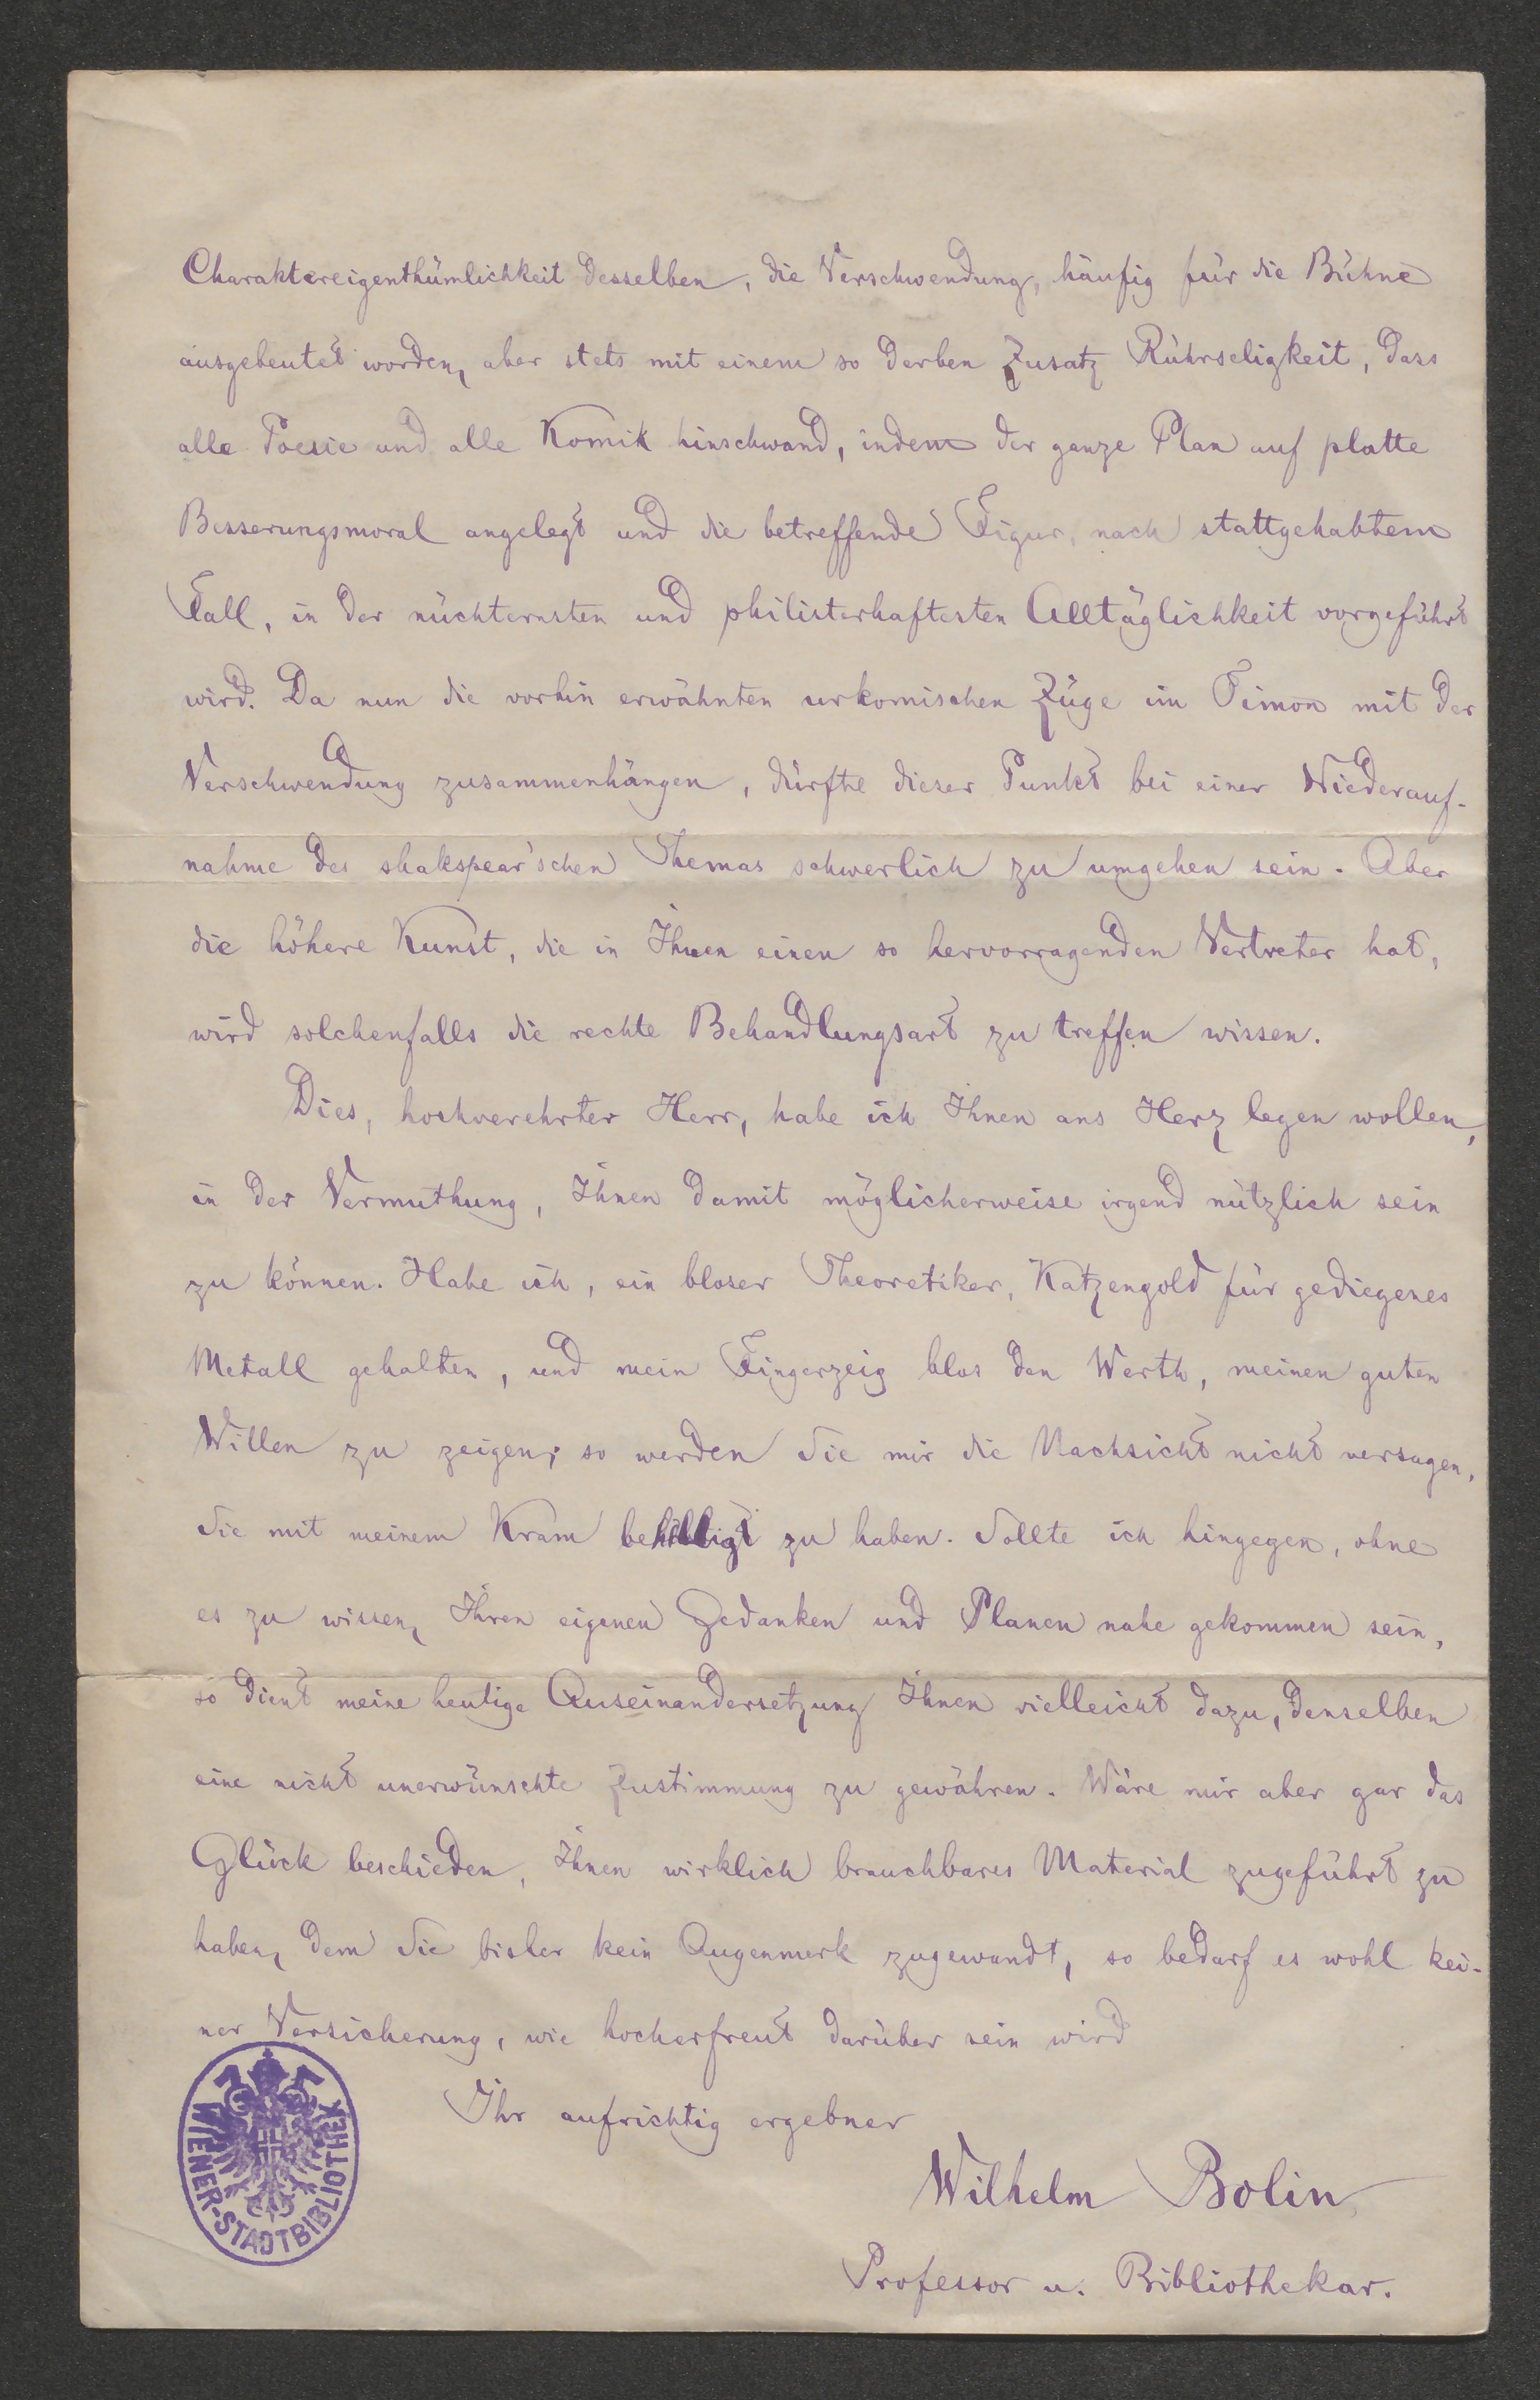 Charaktereigenthümlichkeit desselben, die Verschwendung, häufig für die Bühne
ausgebeutet worden, aber stets mit einem so derben Zusatz Rührseligkeit, dass
alle Poesie und alle Komik hinschwand, indem der ganze Plan auf platte
Besserungsmoral angelegt und die betreffende Figur, nach stattgehabtem
Fall, in der nüchternsten und philisterhaftesten Alltäglichkeit vorgeführt
wird. Da nun die vorhin erwähnten urkomischen Züge im Timon mit der
Verschwendung zusammenhängen, dürfte dieser Punkt bei einer Wiederauf-
nahme des shakspear'schen Themas schwerlich zu umgehen sein. Aber
die höhere Kunst, die in Ihnen einen so hervorragenden Vertreter hat,
wird solchenfalls die rechte Behandlungsart zu treffen wissen.
Dies, hochverehrter Herr, habe ich Ihnen ans Herz legen wollen,
in der Vermuthung, Ihnen damit möglicherweise irgend nützlich sein
zu können. Habe ich, ein bloser Theoretiker, Katzengold für gediegenes
Metall gehalten, und mein Fingerzeig blos den Werth, meinen guten
Willen zu zeigen; so werden Sie mir die Nachsicht nicht versagen,
Sie mit meinem Kram behelligt zu haben. Sollte ich hingegen, ohne
es zu wissen, Ihren eigenen Gedanken und Planen nahe gekommen sein,
so dient meine heutige Auseinandersetzung Ihnen vielleicht dazu, denselben
eine nicht unerwünschte Zustimmung zu gewähren. Wäre mir aber gar das
Glück beschieden, Ihnen wirklich brauchbares Material zugeführt zu
haben, dem Sie bisher kein Augenmerk zugewandt, so bedarf es wohl kei-
ner Versicherung, wie hocherfreut darüber sein wird
Ihr aufrichtig ergebner
Wilhelm Bolin,
Professor u. Bibliothekar.
WIENER-STADTBIBLIOTHEK